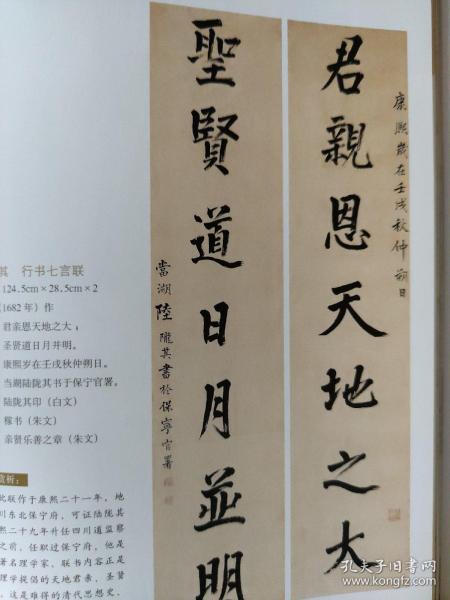 康熙歲在壬戌秋仲朔日
君親恩天地之大
聖賢道日月並明
當湖陸隴其書於保寧官署
其 行书七言联
124.5cm×28.5cm×2
(1682年)作
君亲恩天地之大；
圣贤道日月并明。
康熙岁在壬戌秋仲朔日。
当湖陆陇其书于保宁官署。
陆陇其印（白文）
稼书（朱文）
亲贤乐善之章（朱文）
赏析：
此联作于康熙二十一年，地
川东北保宁府，可证陆陇其
熙二十九年升任四川道监察
之前，任职过保宁府，他是
著名理学家，联书内容正是
理学提倡的天地君亲、圣贤
，这是难得的清代思想史、
孔夫子旧书网